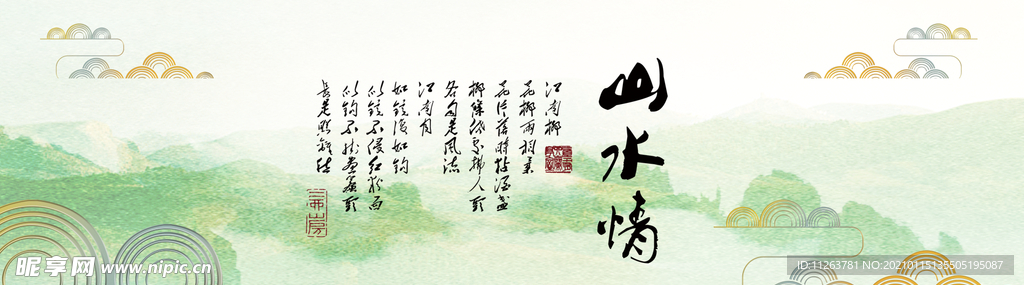 山水情
江南柳
花柳两相柔
花片落时粘酒盏
柳条低处拂人头
各自是风流
江南月
如镜复如钩
似镜不侵红粉面
似钩不挂画帘头
长是照离愁
昵享网 www.nipic.cn
ID:11263781 NO:20210115135505195087